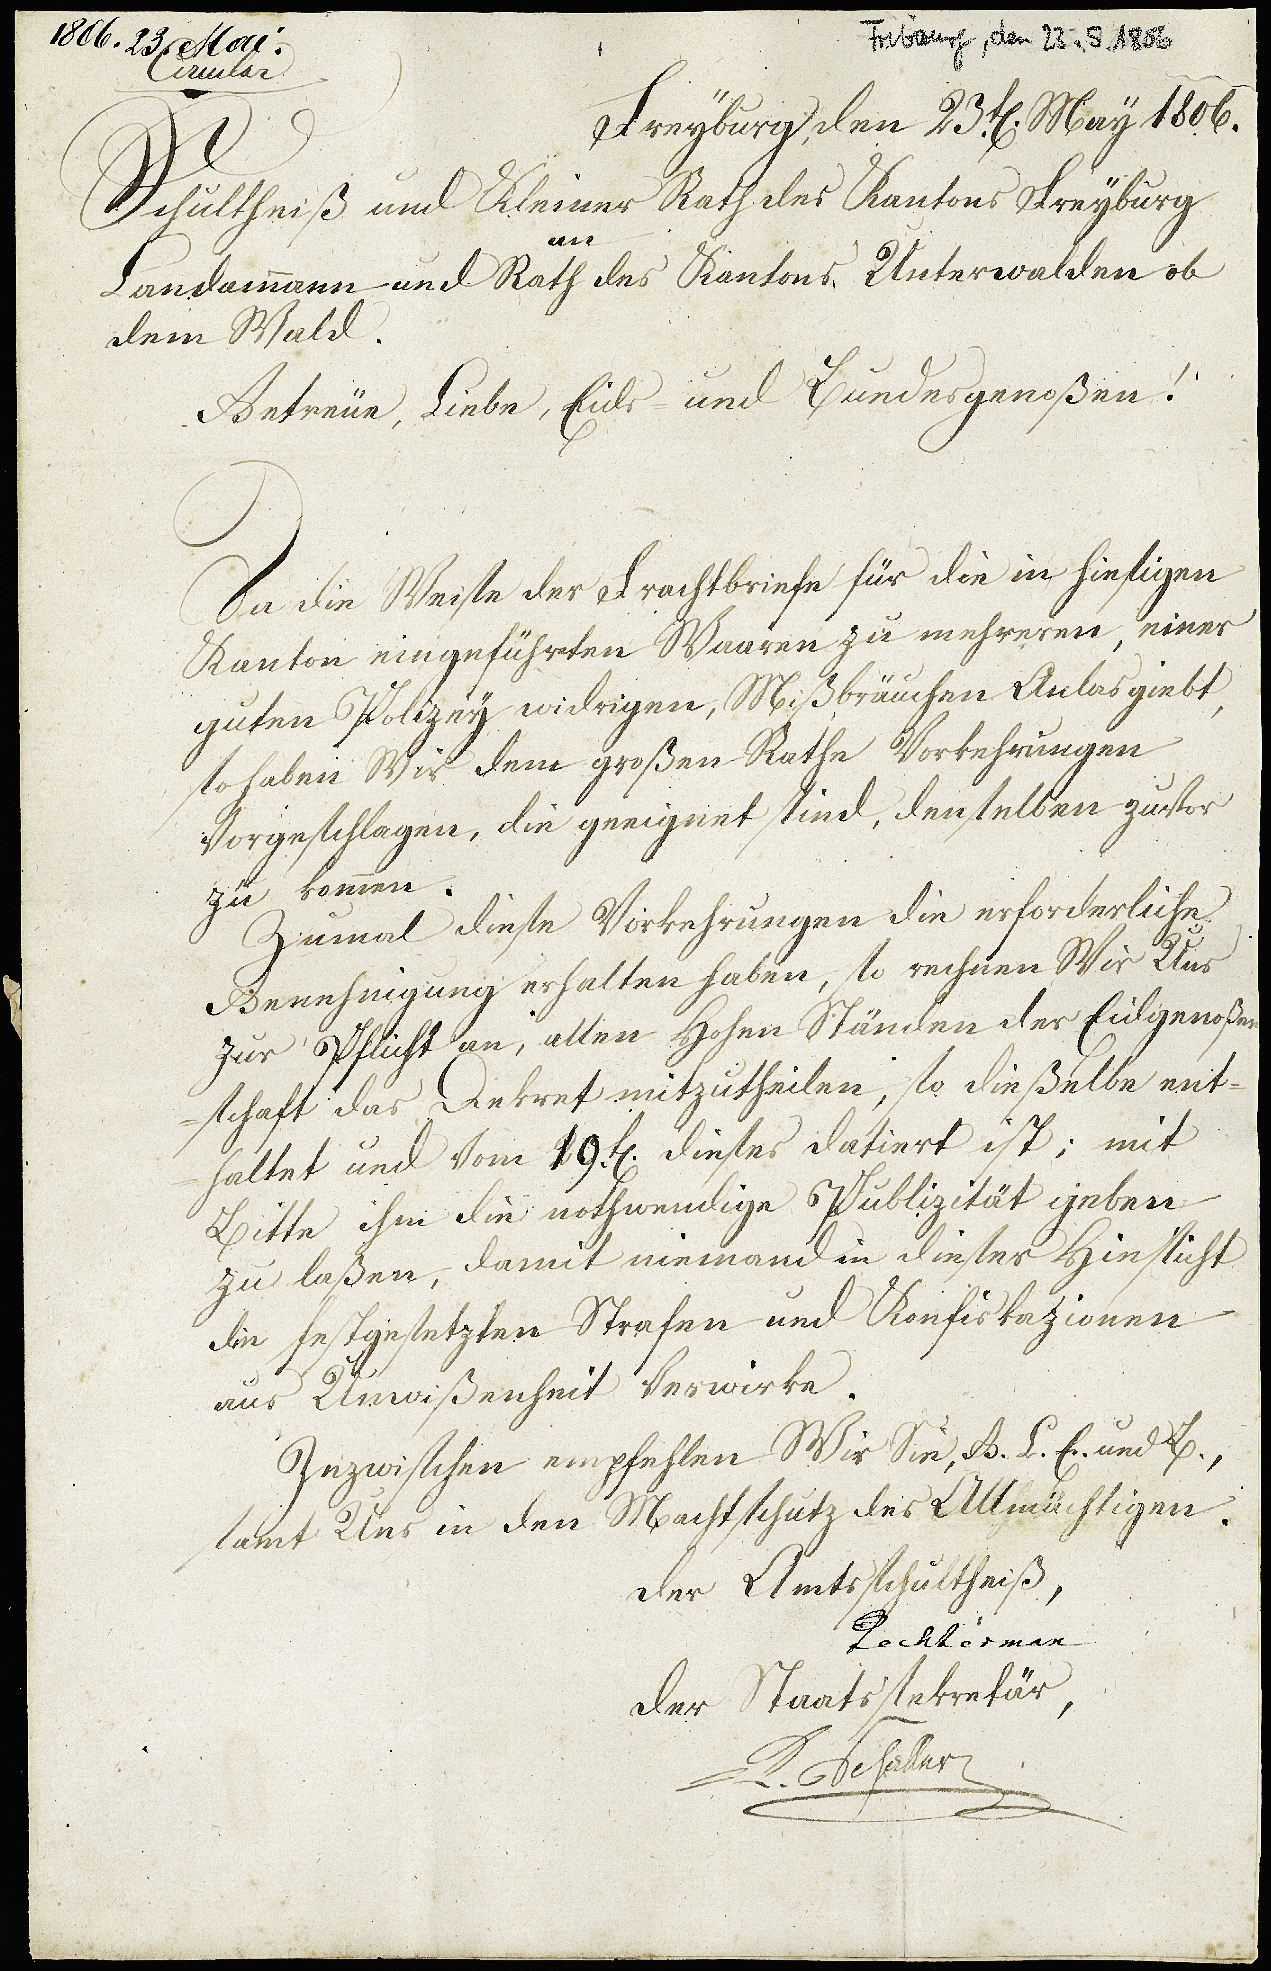 1806. 23. Mai.
Circular
Fribourg, den 23.5.1806
Freyburg, den 23.t. May 1806.
Schultheiß und Kleiner Rath des Kantons Freyburg
an
Landam̄ann und Rath des Kantons Unterwalden ob
dem Wald.
Getreüe, Liebe, Eids- und Bundesgenoßen!
Da die Weise der Frachtbriefe für die in hiesigen
Kanton eingeführten Waaren zu mehreren, einer
guten Polizey widrigen, Mißbräuchen Anlas giebt,
so haben Wir dem großen Rathe Vorkehrungen
vorgeschlagen, die geeignet sind, denselben zuvor
zu kom̄en.
Zumal diese Vorkehrungen die erforderliche
Genehmigung erhalten haben, so rechnen Wir Uns
zur Pflicht an, allen Hohen Ständen der Eidgenoßen
=schaft das Dekret mitzutheilen, so dieselbe ent=
=haltet und vom 19.t. dieses datiert ist; mit
Bitte ihm die nothwendige Publizität geben
zu laßen, damit niemand in dieser Hinsicht
die festgesetzten Strafen und Konfiskazionen
aus Unwißenheit verwirke.
Inzwischen empfehlen Wir Sie, G. L. E. und B.,
samt Uns in den Machtschutz des Allmächtigen.
der Amtsschultheiß,
Techtermann
der Staatssekretär,
Schaller